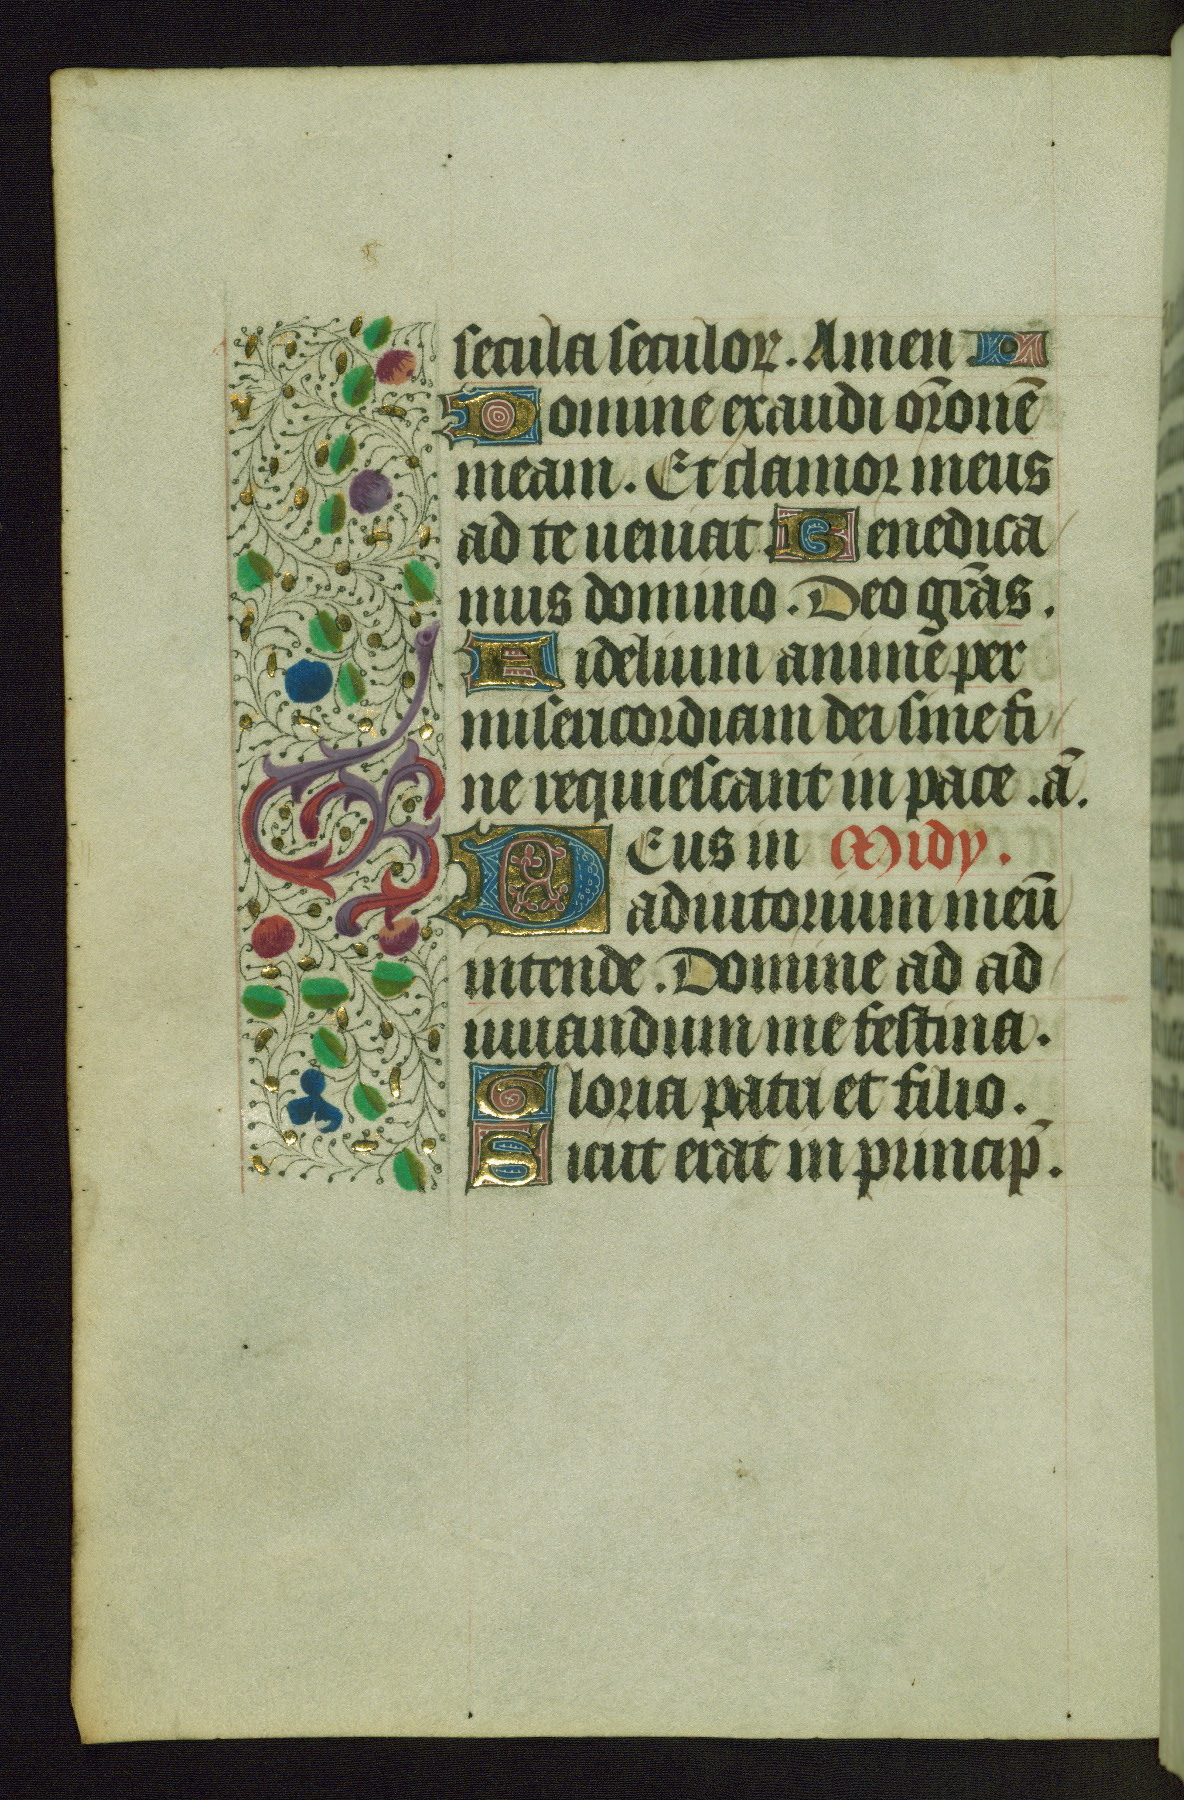 secula seculoꝝ. Amen
Domine exaudi or̄onē
meam. Et clamor meus
ad te ueniat Benedica
mus domino. Deo gr̄as.
Fidelium anime per
misericordiam dei sine fi
ne requiescant in pace .ā.
DEus in Midy.
adiutorium meū
intende. Domine ad ad
iuuandum me festina.
Gloria patri et filio.
Sicut erat in princip̄.